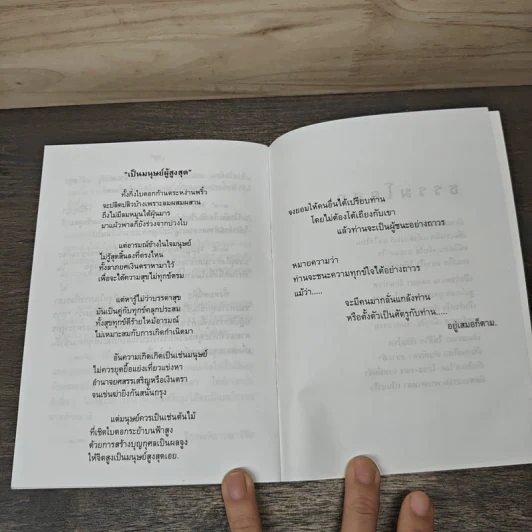 "เป็นมนุษย์ผู้สูงสุด"
ทั้งกิ่งใบดอกก้านตระหง่านพริ้ว
จะปลิดปลิวบ้างเพราะลมผสมผสาน
ถึงไม่มีลมหมุนใต้ฝุ่นมาร
มาแผ้วพาลก็ยังร่วงจากปวงใบ
แต่อารมณ์ข้างในใจมนุษย์
ไม่รู้สุดสิ้นลงที่ตรงไหน
ทั้งลาภยศเงินตราหามาไว้
เพื่อจะได้ความสุขไม่ทุกข์ตรม
แต่หารู้ไม่ว่าบรรดาสุข
มันเป็นคู่กับทุกข์คลุกประสม
ทั้งสุขทุกข์ดีร้ายไหม้อารมณ์
ไม่เหมาะสมกับการเกิดกำเนิดมา
อันความเกิดเกิดเป็นเช่นมนุษย์
ไม่ควรยุดยื้อแย่งเที่ยวแข่งหา
อำนาจยศสรรเสริญหรือเงินตรา
จนเข่นฆ่ายิงกันสนั่นกรุง
แต่มนุษย์ควรเป็นเช่นต้นไม้
ที่เชิดใบดอกระย้าบนฟ้าสูง
ด้วยการสร้างบุญกุศลเป็นผลจูง
ให้จิตสูงเป็นมนุษย์สูงสุดเอย.
จงยอมให้คนอื่นได้เปรียบท่าน
โดยไม่ต้องโต้เถียงกับเขา
แล้วท่านจะเป็นผู้ชนะอย่างถาวร
หมายความว่า
ท่านจะชนะความทุกข์ใจได้อย่างถาวร
แม้ว่า.....
จะมีคนมากลั่นแกล้งท่าน
หรือตั้งตัวเป็นศัตรูกับท่าน.....
อยู่เสมอก็ตาม.